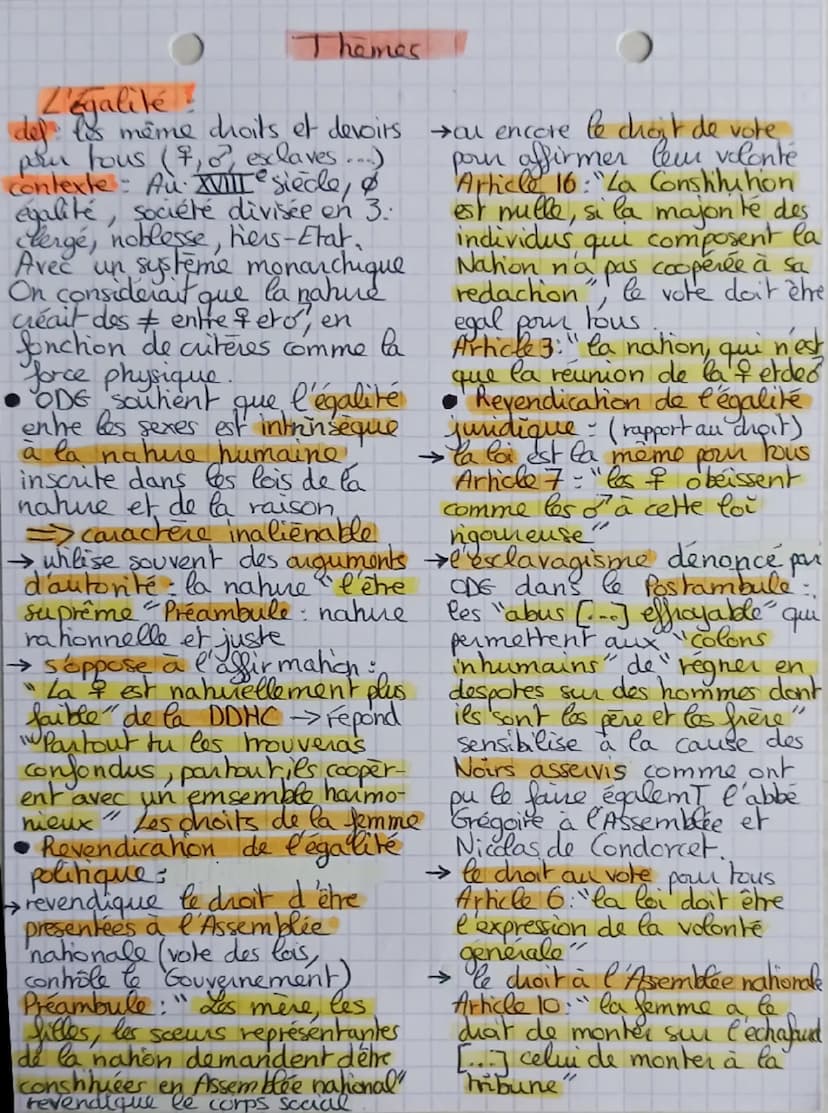 Thèmes
L'égalité :
def : les même droits et devoirs
pour tous (♀, ♂, esclaves ...)
contexte : Au XVIIIe siècle, ∅
égalité, société divisée en 3 :
clergé, noblesse, tiers-Etat.
Avec un système monarchique
On considérait que la nature
créait des ≠ entre ♀ et ♂, en
fonction de critères comme la
force physique.
• ODG soutient que l'égalité
entre les sexes est intrinsèque
à la nature humaine
inscrite dans les lois de la
nature et de la raison
=> caractère inaliénable
→ utilise souvent des arguments
d'autorité : la nature "l'être
suprême" Préambule : nature
rationnelle et juste
→ s'oppose à l'affirmation :
"La ♀ est naturellement plus
faible" de la DDHC → répond
"Partout tu les trouveras
confondus, partout ils coopèr-
ent avec un emsemble harmo-
nieux" Les droits de la femme
• Revendication de l'égalité
politique :
→ revendique le droit d'être
présentées à l'Assemblée
nationale (vote des lois,
contrôle le Gouvernement)
Préambule : "Les mère, les
filles, les sœurs représentantes
de la nation demandent d'être
constituées en Assemblée national"
revendique le corps social
→ ou encore le droit de vote
pour affirmer leur volonté
Article 16 : "La Constitution
est nulle, si la majorité des
individus qui composent la
Nation n'a pas coopérée à sa
redaction", le vote doit être
egal pour tous.
Article 3 : "la nation, qui n'est
que la réunion de la ♀ et de ♂
• Revendication de l'égalité
juridique : (rapport au droit)
→ la loi est la même pour tous
Article 7 : "les ♀ obéissent
comme les ♂ à cette loi
rigoureuse"
→ l'esclavagisme dénoncé par
ODG dans le Postambule :
les "abus [...] effroyable" qui
permettent aux "colons
inhumains" de "régner en
despotes sur des hommes dont
ils sont les père et les frère"
sensibilise à la cause des
Noirs asservis comme ont
pu le faire égalemT l'abbé
Grégoire à l'Assemblée et
Nicolas de Condorcet.
→ le droit au vote pour tous
Article 6 : "la loi doit être
l'expression de la volonté
générale"
→ le droit à l'Assemblée nationale
Article 10 : "la femme a le
droit de monter sur l'échafaud
[...] celui de monter à la
tribune"